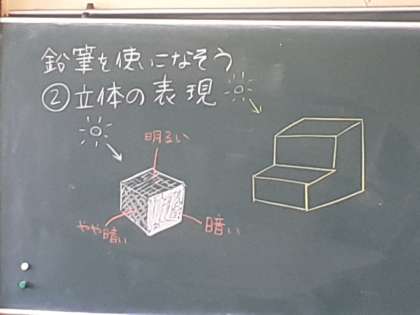 鉛筆を使いになそう
②立体の表現
明るい
やや暗い
暗い